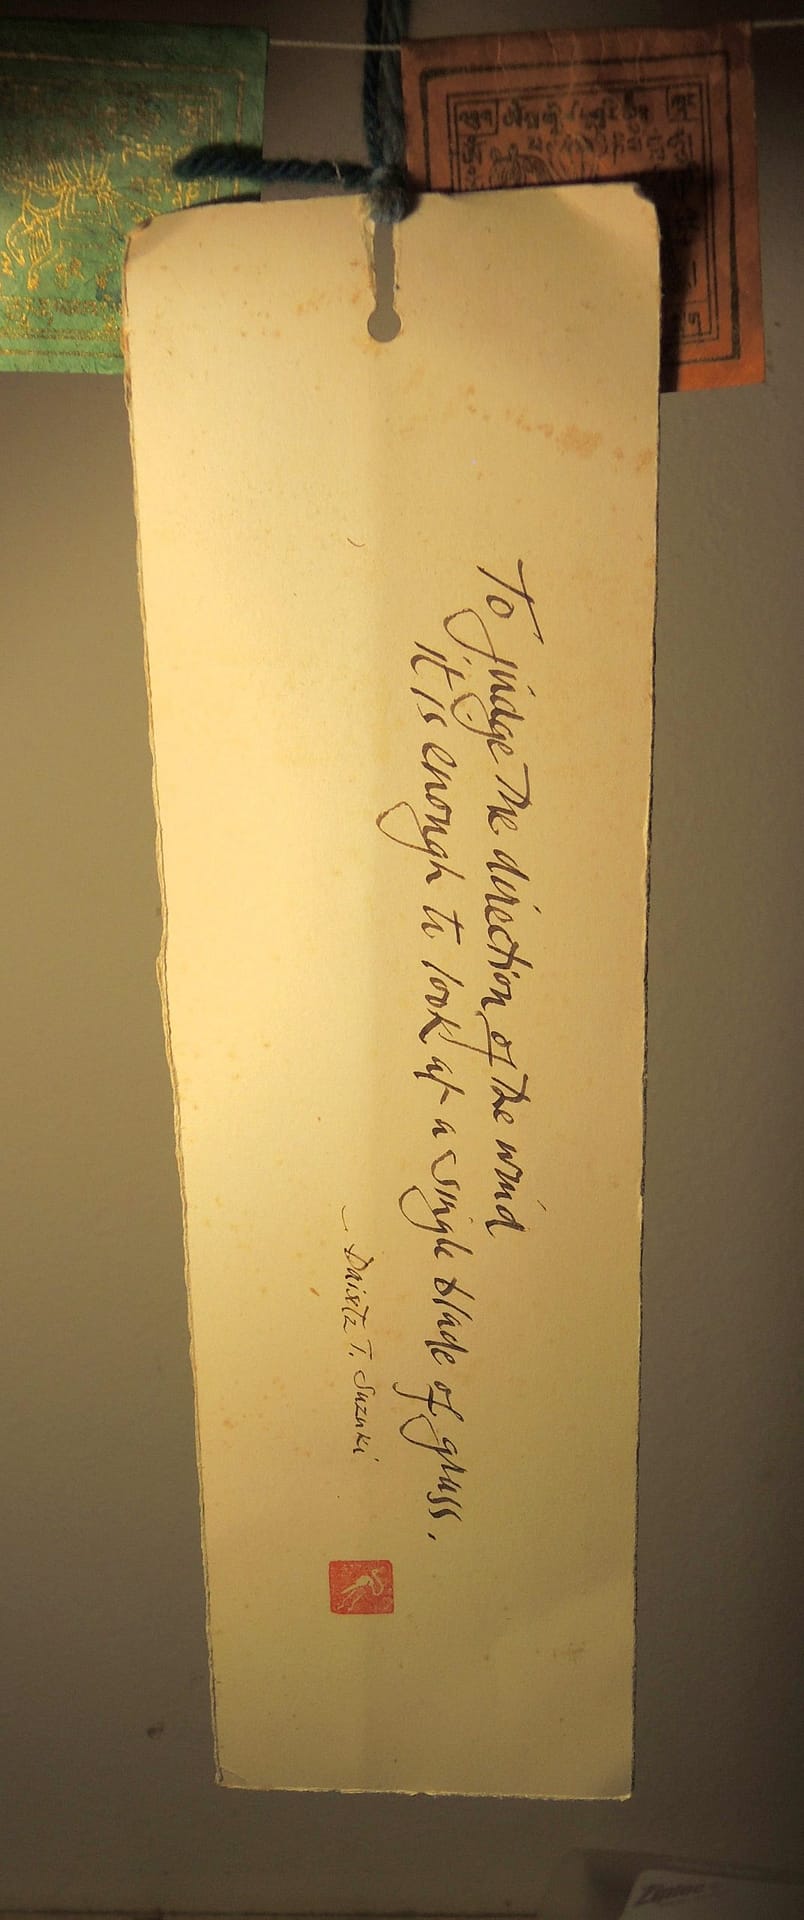 To judge the direction of the wind
it is enough to look at a single blade of grass.
- Daisetz T. Suzuki